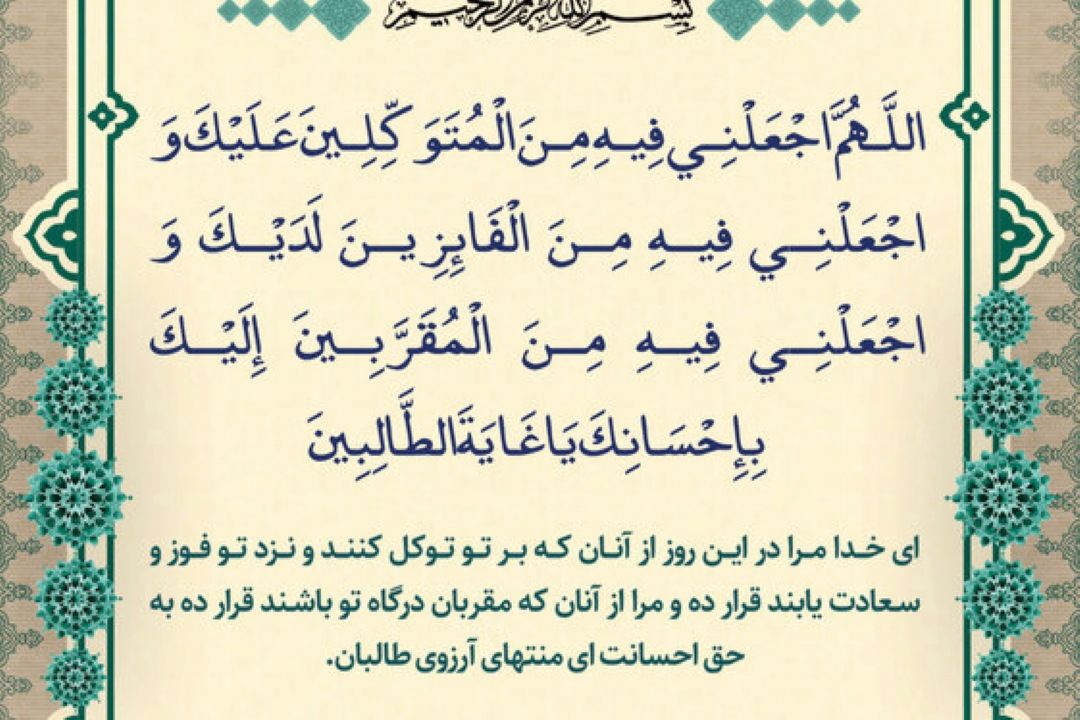 بِسْمِ اللَّهِ الرَّحْمَنِ الرَّحِيمِ
اللَّهُمَّ اجْعَلْنِي فِيهِ مِنَ الْمُتَوَكِّلِينَ عَلَيْكَ وَ
اجْعَلْنِي فِيهِ مِنَ الْفَائِزِينَ لَدَيْكَ وَ
اجْعَلْنِي فِيهِ مِنَ الْمُقَرَّبِينَ إِلَيْكَ
بِإِحْسَانِكَ يَا غَايَةَ الطَّالِبِينَ
ای خدا مرا در این روز از آنان که بر تو توکل کنند و نزد تو فوز و
سعادت یابند قرار ده و مرا از آنان که مقربان درگاه تو باشند قرار ده به
حق احسانت ای منتهای آرزوی طالبان.